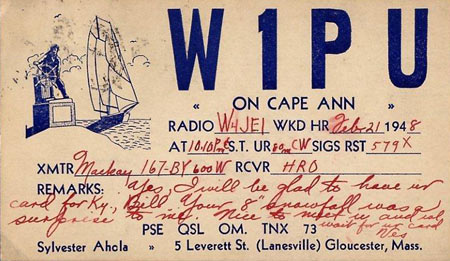 W1PU
« ON CAPE ANN »
RADIO W4JEI WKD HR Feb. 21 1948
AT 10:10 P.M. E.S.T. UR 80m CW SIGS RST 579X
XMTR Mackay 167-BY 600W RCVR HRO
REMARKS: Yes, I will be glad to have ur
card for Ky., Bill. Your 8" snowfall was a
surprise to me. Nice to meet u and wl
wait for ur card
Ves
PSE QSL OM. TNX 73
Sylvester Ahola » 5 Leverett St. (Lanesville) Gloucester, Mass.